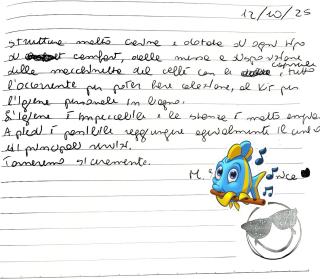 12/10/25
struttura molto carina e dotata di ogni tipo
di comfort, dalla messa a disposizione
della macchinetta del caffè con le capsule, tutto
l'occorrente per poter fare colazione, al kit per
l'igiene personale in bagno.
L'igiene è impeccabile e la stanza è molto
A piedi è possibile raggiungere agevolmente il
ed i principali servizi.
Torneremo sicuramente.
M.